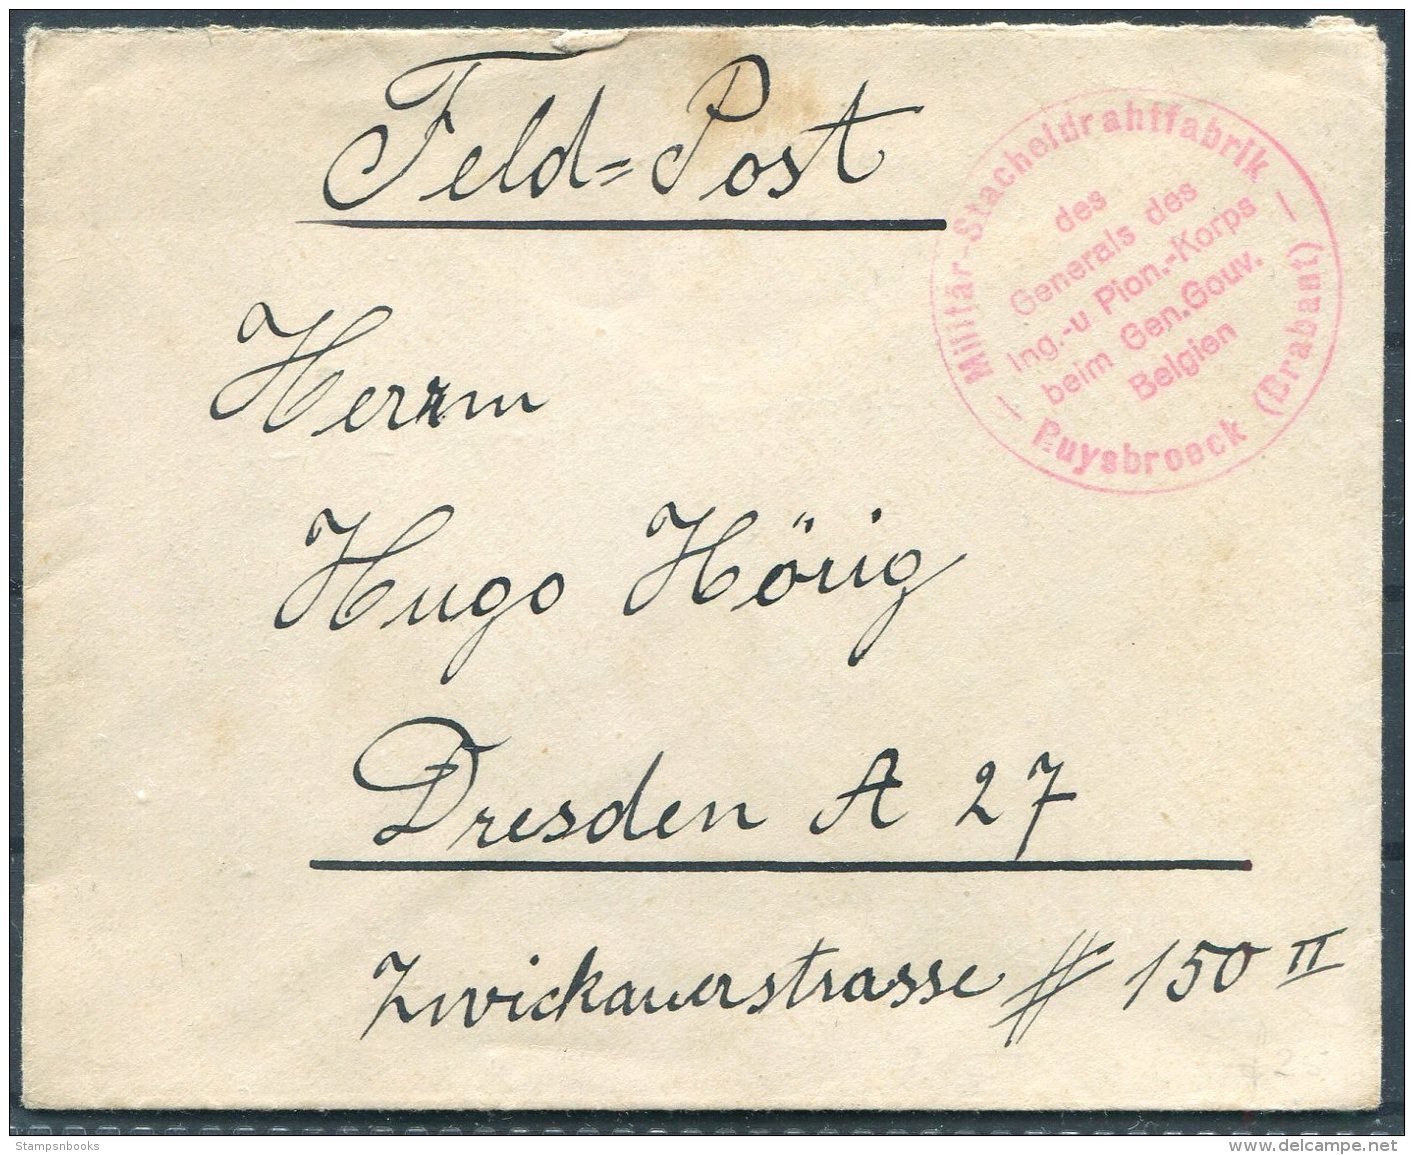 Feld=Post
Militär-Stacheldrahtfabrik
des
Generals des
Ing.-u Pion.-Korps
beim Gen.Gouv.
Belgien
Ruysbroeck (Brabant)
Herrn
Hugo Hörig
Dresden A 27
Zwickauerstrasse # 150 II
Stampsnbooks
delcampe.net